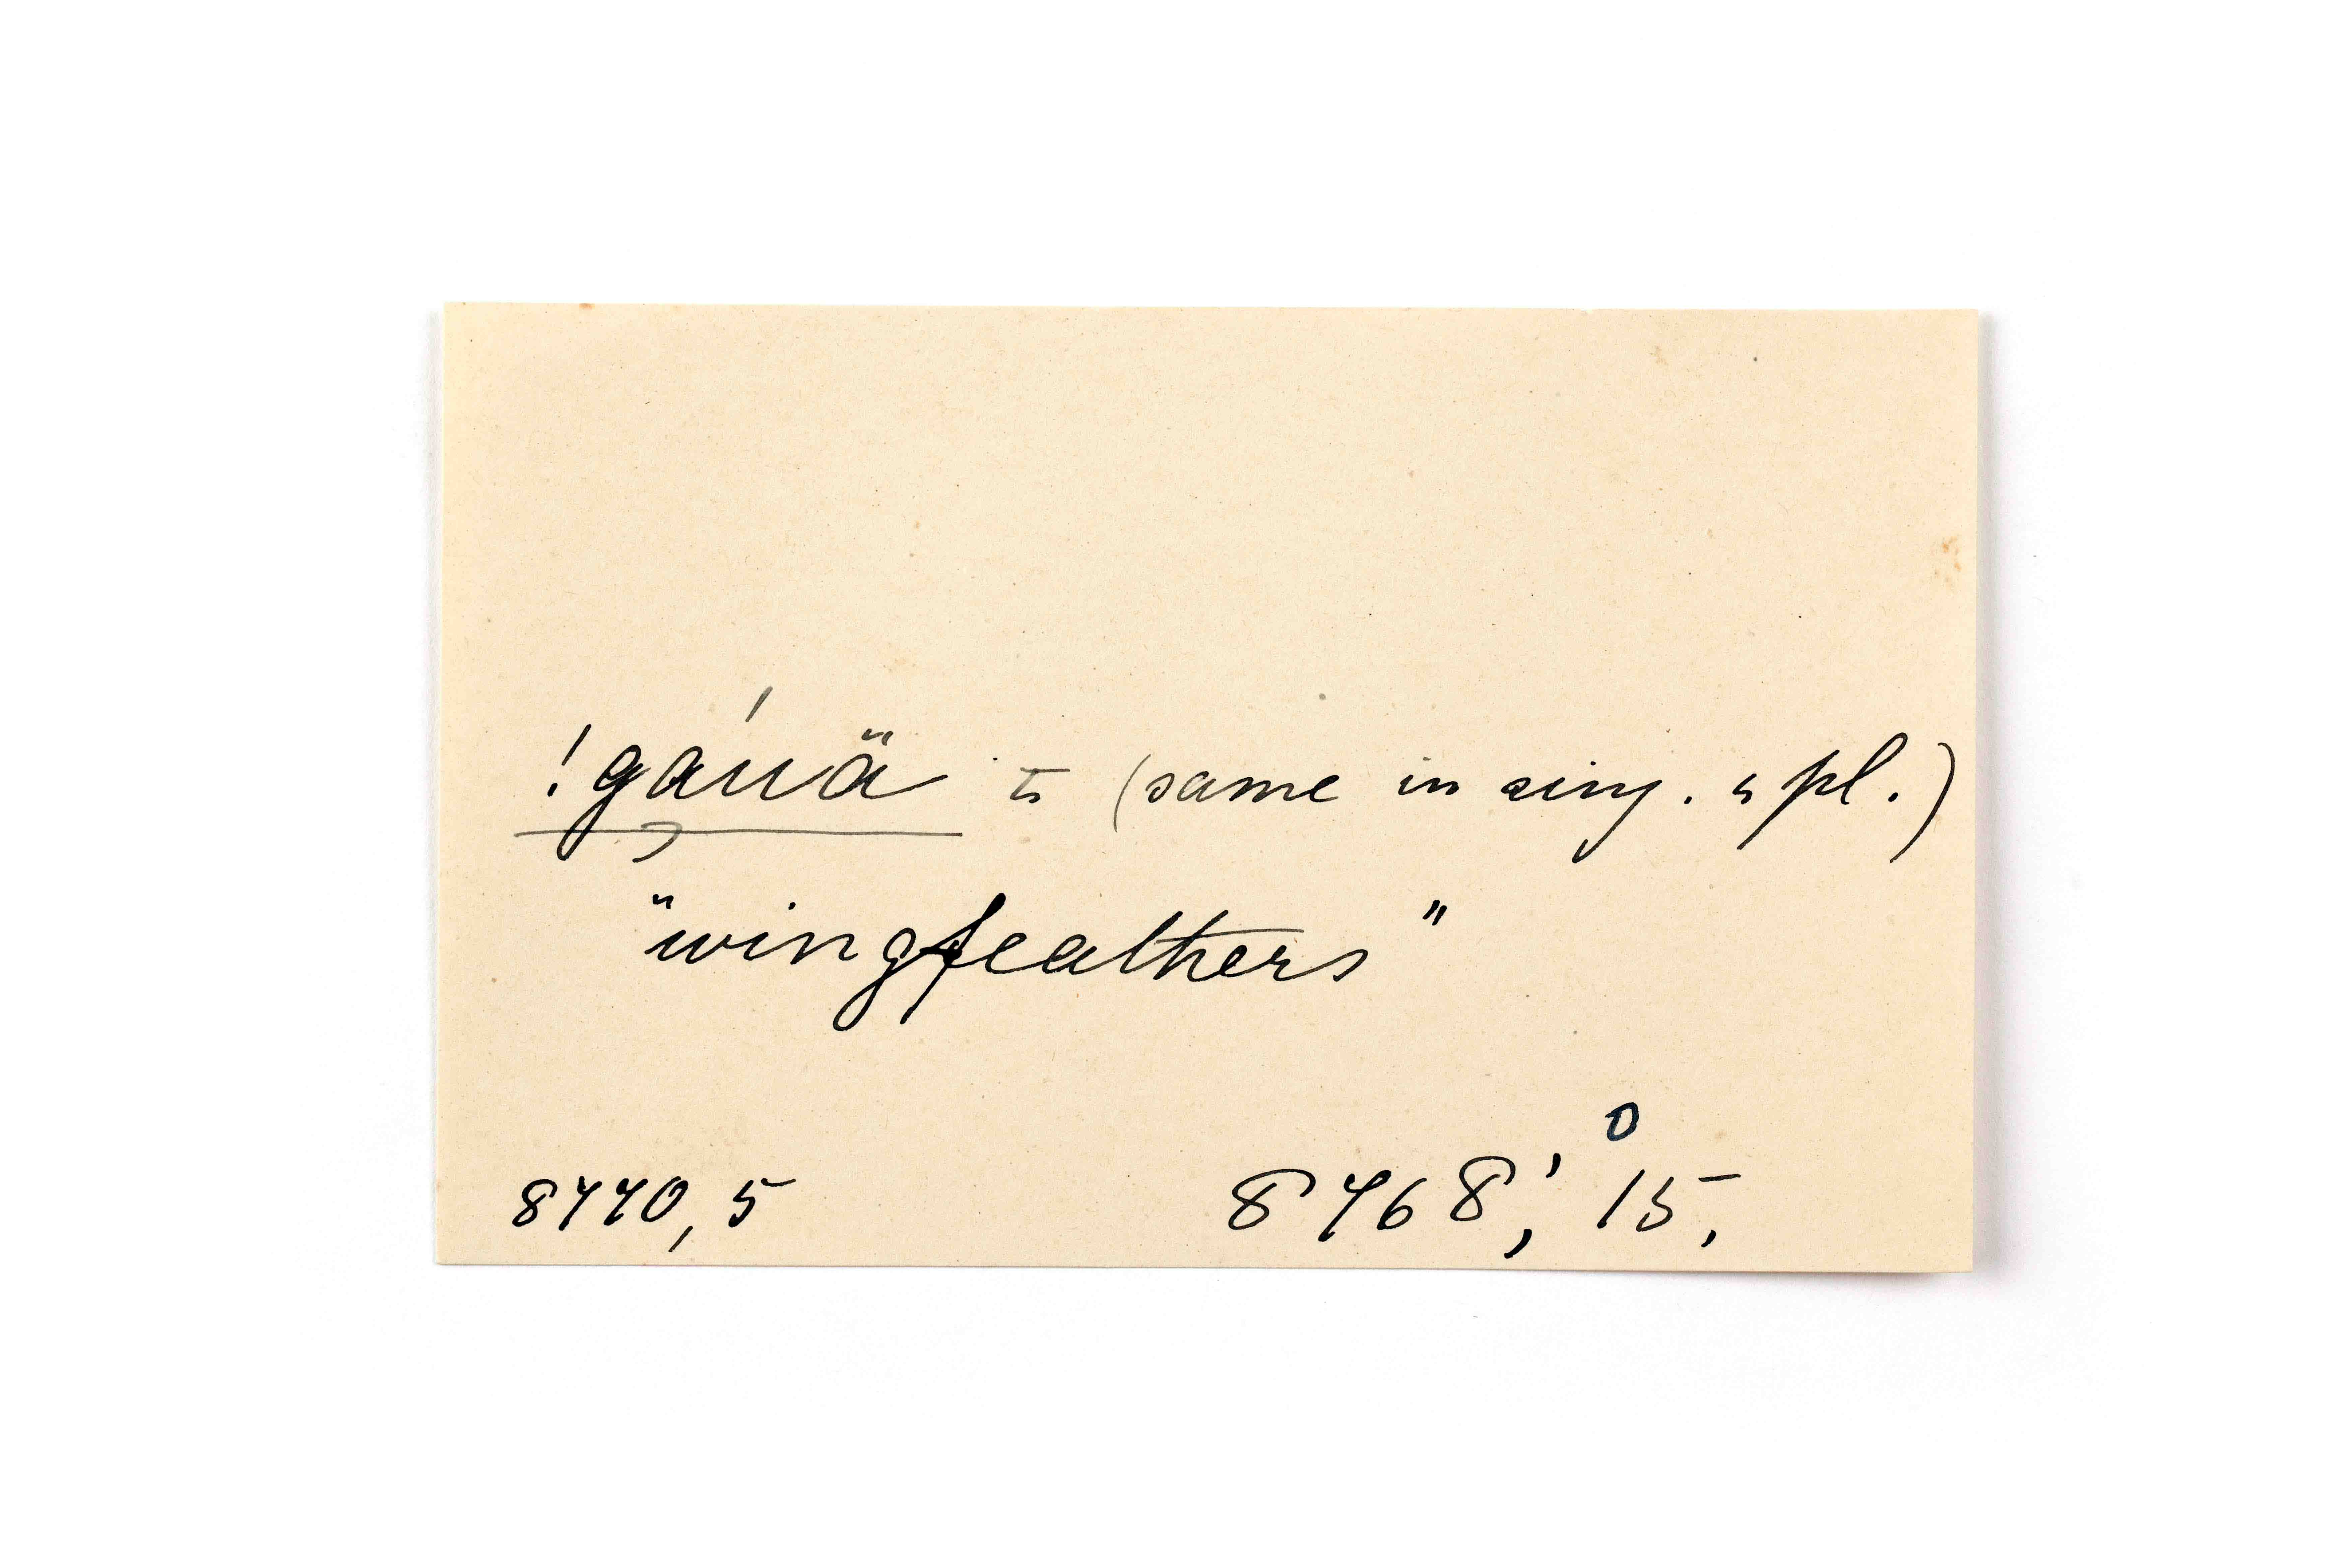 !gáuä (same in sing. & pl.)
"wingfeathers"
8770, 5 8768, 15,